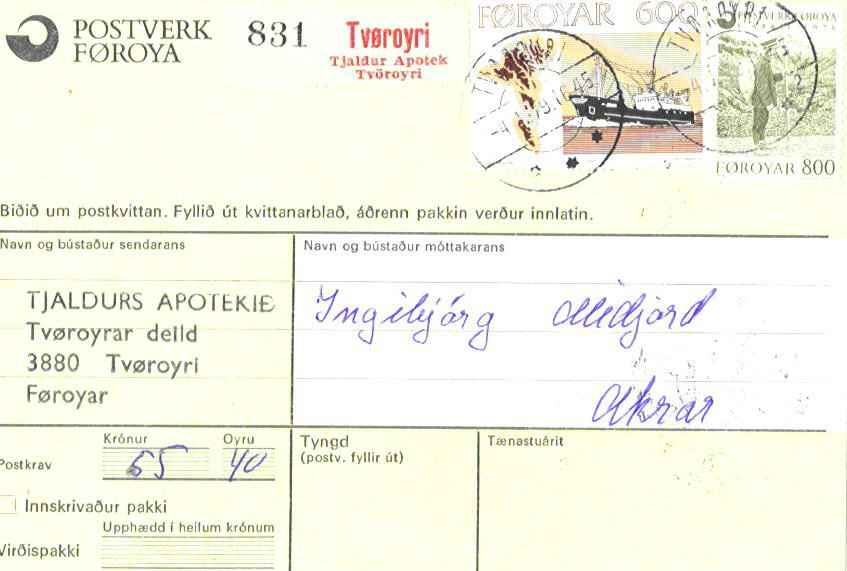 POSTVERK FØROYA
831
Tvøroyri
Tjaldur Apotek
Tvöroyri
FØROYAR 600
POSTVERK FØROYA
FØROYAR 800
Biðið um postkvittan. Fyllið út kvittanarblað, áðrenn pakkin verður innlatin.
Navn og bústaður sendarans
Navn og bústaður móttakarans
TJALDURS APOTEKIÐ
Tvøroyrar deild
3880 Tvøroyri
Føroyar
Ingibjörg Midjord
Akrar
Krónur
Oyru
Postkrav
55
40
Tyngd
(postv. fyllir út)
Tænastuárit
Innskrivaður pakki
Upphædd í heilum krónum
Virðispakki